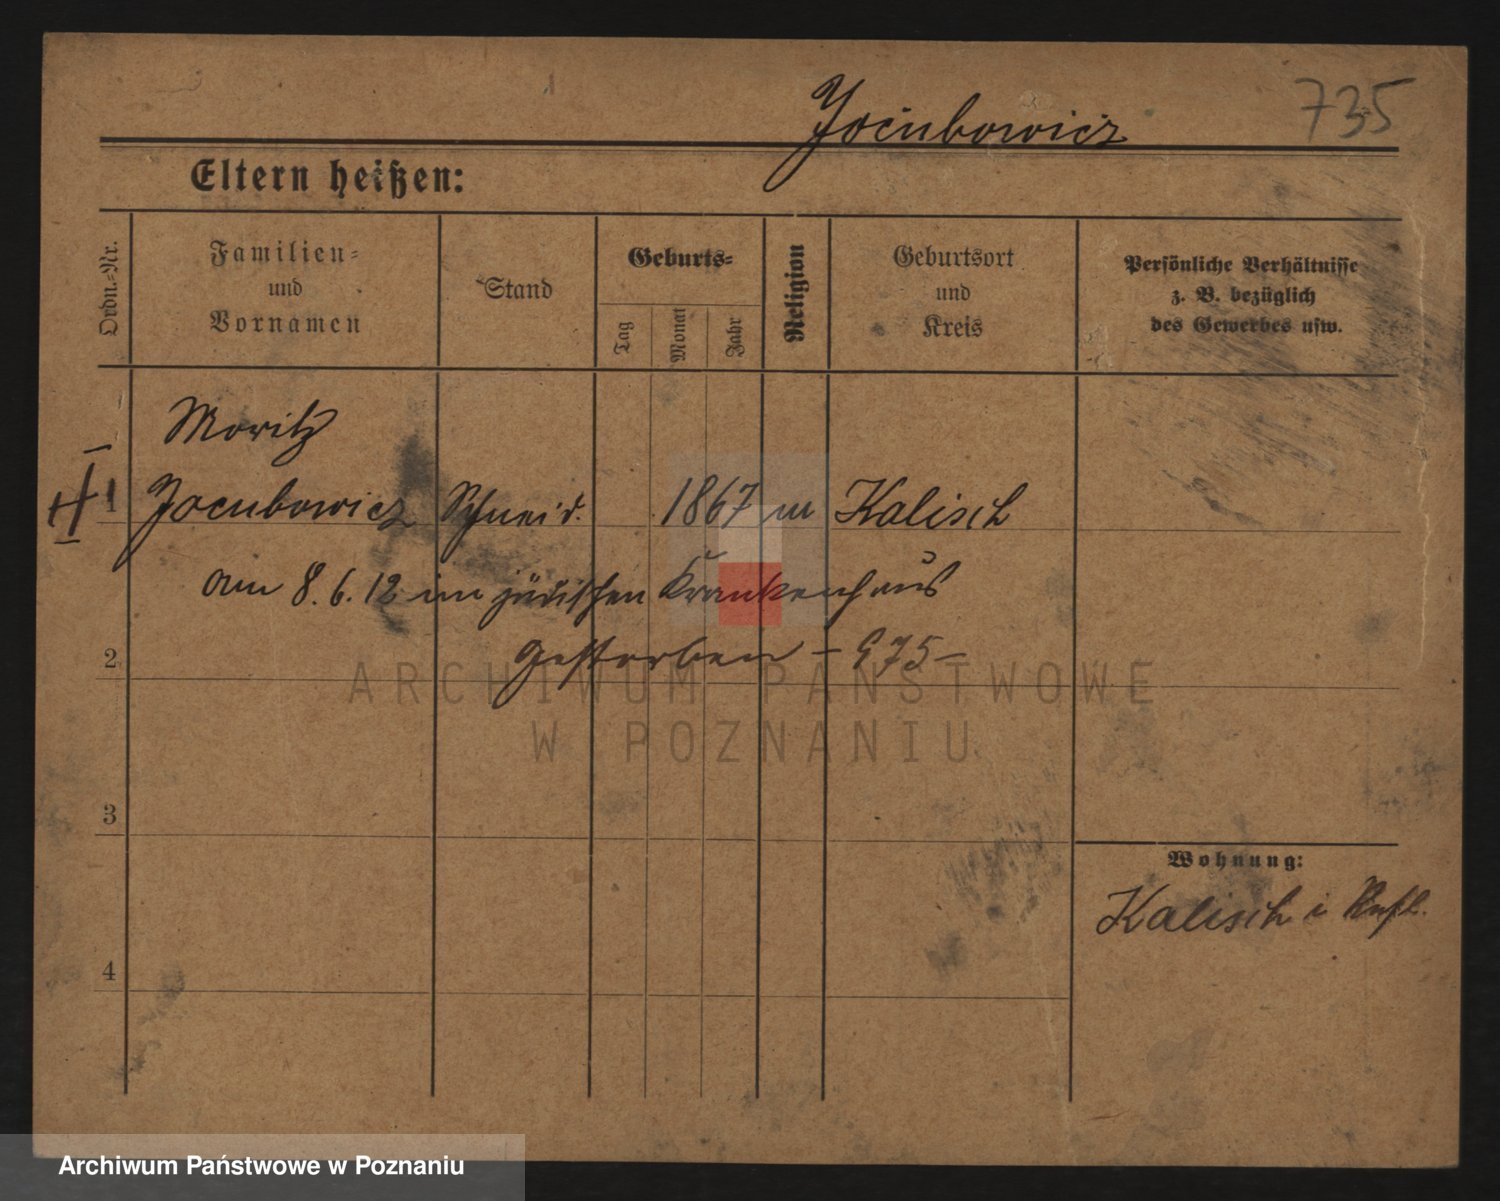 Jacubowicz 735
Eltern heißen:
Ordn.-Nr.
Familien-
und
Vornamen
Stand
Geburts-
Tag
Monat
Jahr
Religion
Geburtsort
und
Kreis
Persönliche Verhältnisse
z. B. bezüglich
des Gewerbes usw.
Moritz
1 Jacubowicz Schneid. 1867 m Kalisch
am 8.6.12 im jüdischen Krankenhaus
2 gestorben – 975 –
3
Wohnung:
Kalisch i Rußl.
4
ARCHIWUM PAŃSTWOWE
W POZNANIU
Archiwum Państwowe w Poznaniu